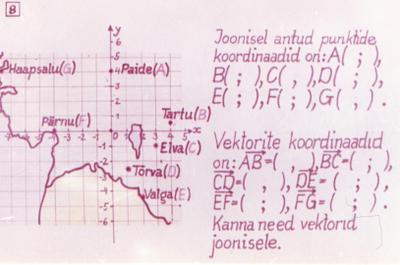 8
y
Haapsalu(G)
Paide(A)
Tartu(B)
Pärnu(F)
x
Elva(C)
Tõrva(D)
Valga(E)
Joonisel antud punktide
koordinaadid on: A( ; ),
B( ; ), C( , ), D( ; ),
E( ; ), F( ; ), G( , ).
Vektorite koordinaadid
on: AB=( , ), BC=( ; ),
CD=( , ), DE=( ; ),
EF=( ; ), FG=( ; ).
Kanna need vektorid
joonisele.